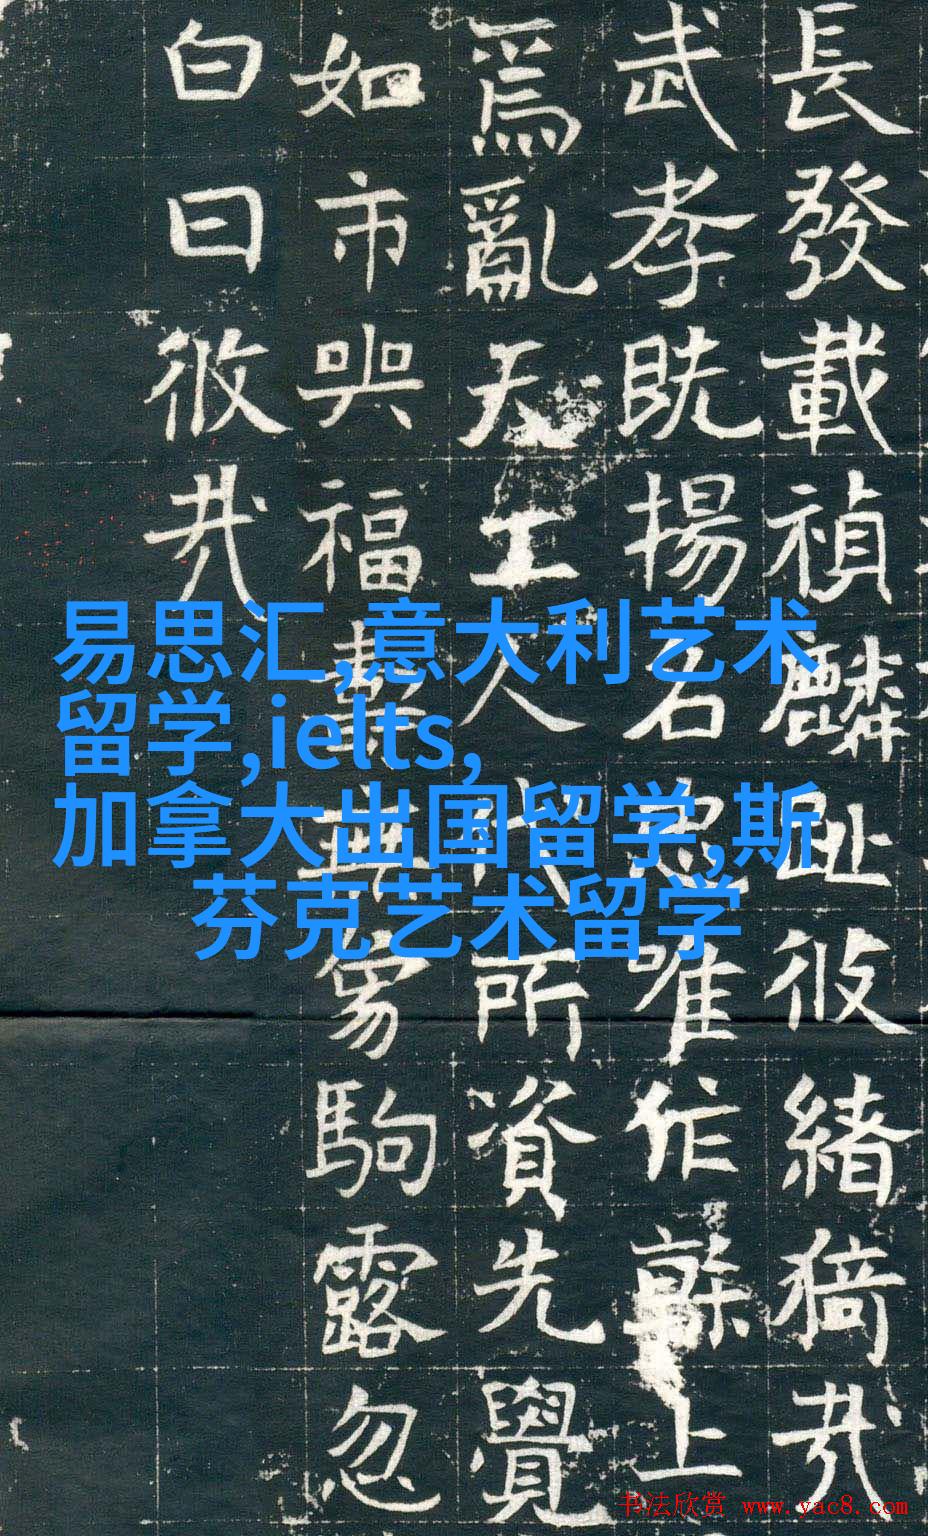 長發載禎麟趾彼緒猗㢤
武孝既揚名忠唯作幹上
為亂天工人代所資先覺
如市與福壽無象駒露忽
白日彼㢤
易思汇,意大利艺术
留学,ielts,
加拿大出国留学,斯
芬克艺术留学
书法欣赏 www.yac8.com